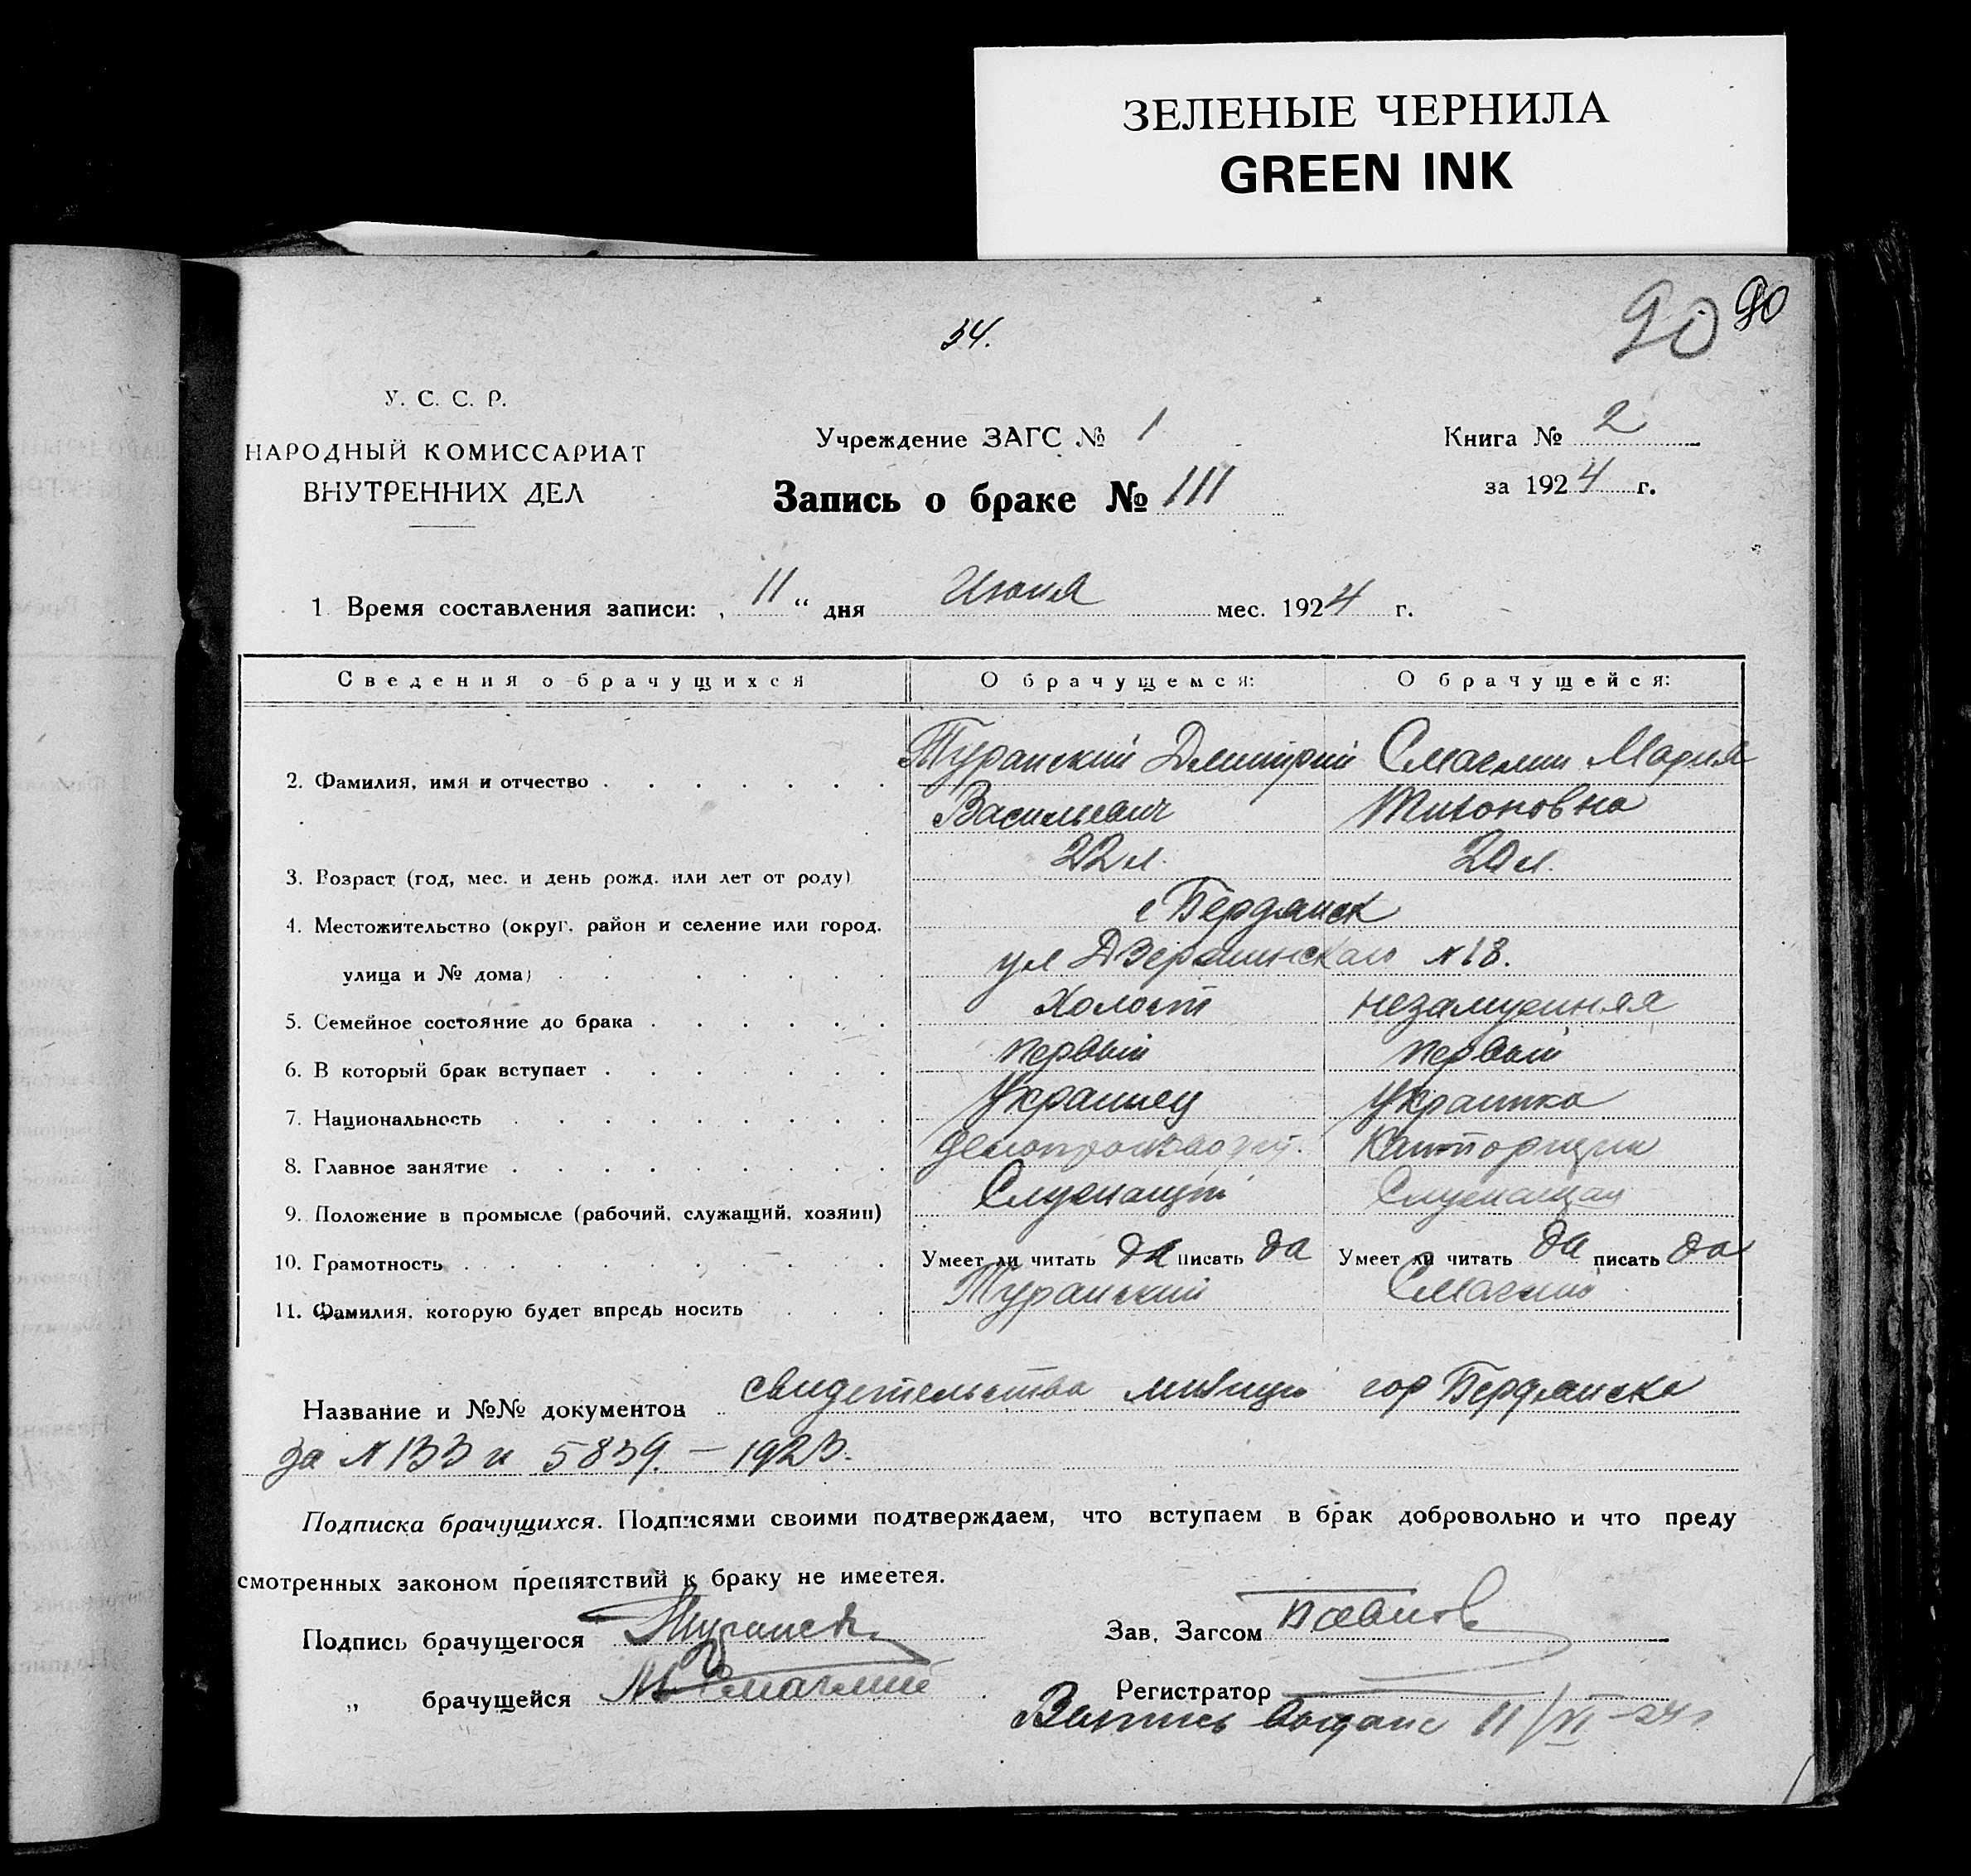 ЗЕЛЕНЫЕ ЧЕРНИЛА
GREEN INK
90 90
34.
У. С. С. Р.
НАРОДНЫЙ КОМИССАРИАТ
ВНУТРЕННИХ ДЕЛ
Учреждение ЗАГС № 1
Запись о браке № 111
Книга № 2
за 1924 г.
1 Время составления записи: „ 11 “ дня Июня мес. 1924 г.
Сведения о брачущихся О брачущемся: О брачущейся:
2. Фамилия, имя и отчество Туранский Дмитрий Смаглий Мария
Васильевич Тихоновна
3. Возраст (год, мес. и день рожд. или лет от роду) 22 л. 20 л.
4. Местожительство (округ, район и селение или город, г Бердянск
улица и № дома) ул Дзержинского № 18.
5. Семейное состояние до брака Холост незамужняя
6. В который брак вступает первый первый
7. Национальность Украинец Украинка
8. Главное занятие делопроизводит. Конторщик
9. Положение в промысле (рабочий, служащий, хозяин) Служащий Служащая
10. Грамотность Умеет ли читать да писать да Умеет ли читать да писать да
11. Фамилия, которую будет впредь носить Туранский Смаглий
Название и №№ документов свидетельства милиции гор Бердянска
за № 133 и 5839. – 1923.
Подписка брачущихся. Подписями своими подтверждаем, что вступаем в брак добровольно и что преду
смотренных законом препятствий к браку не имеетея.
Подпись брачущегося Туранск
Зав. Загсом Павлов
„ брачущейся М Смаглий
Регистратор
Выпись выдана 11/VI-24 г